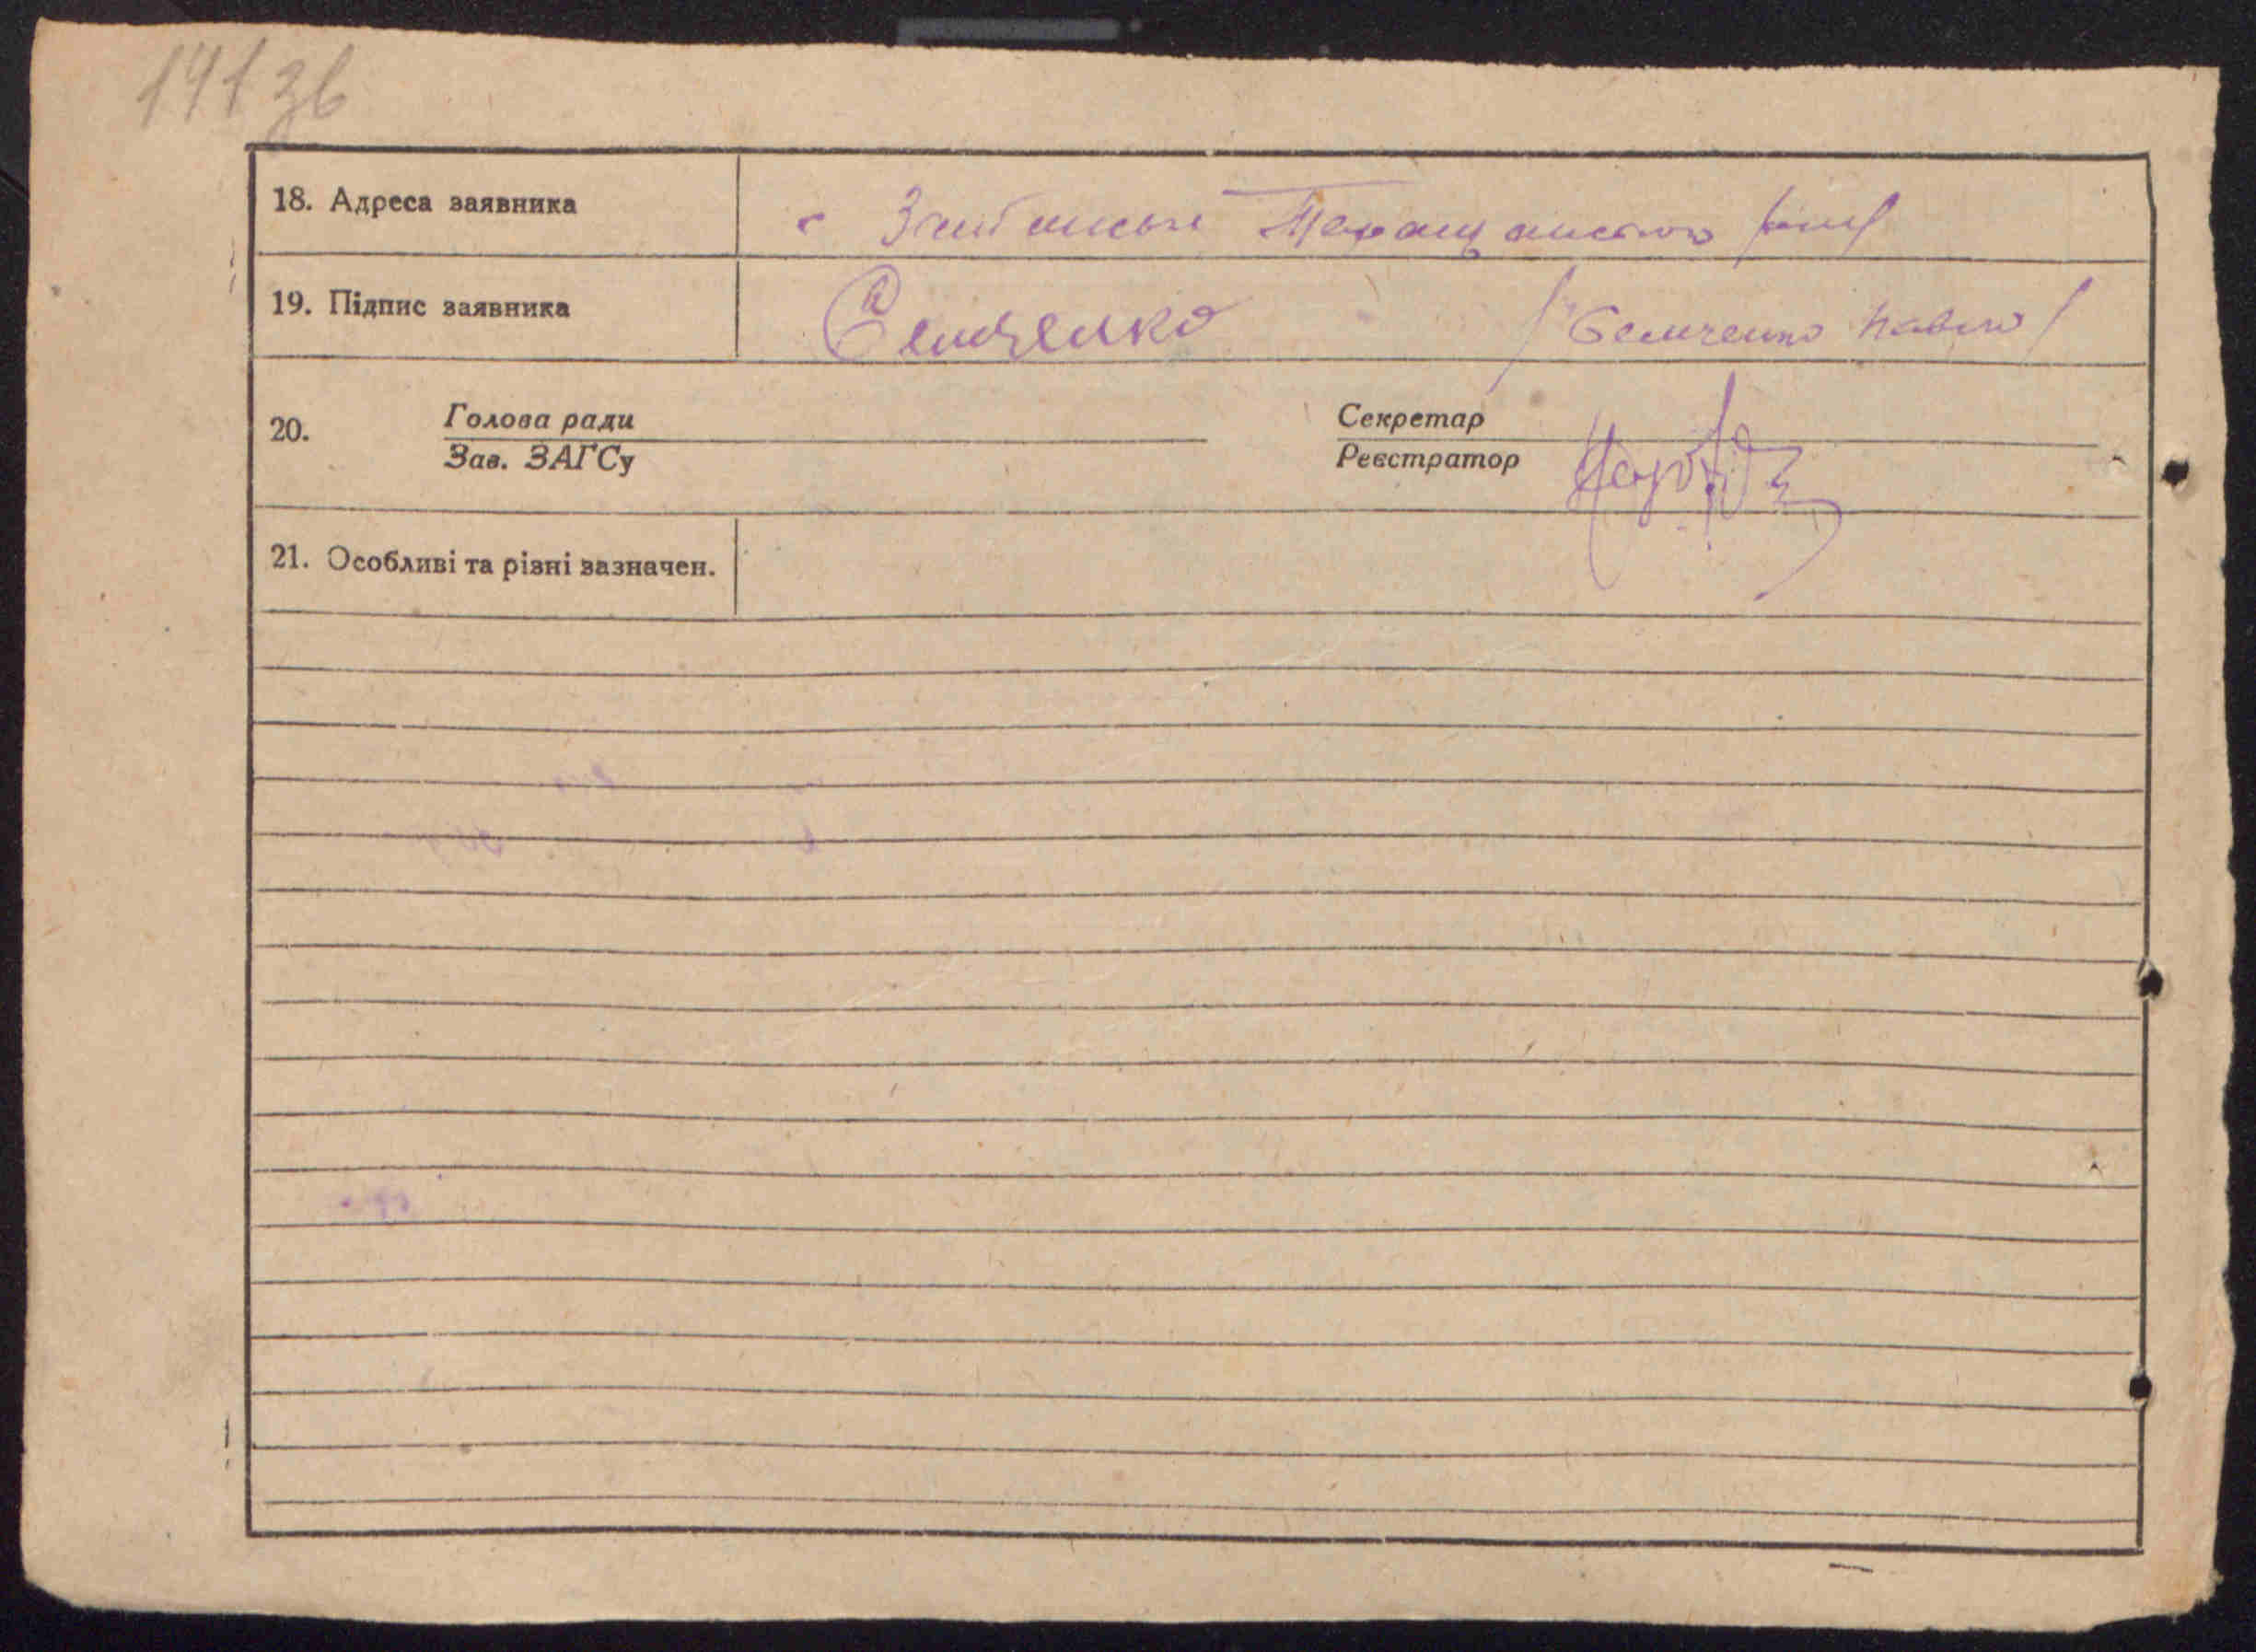 191 зв
18. Адреса заявника
с Таращанського
19. Підпис заявника Семченко /Семченко Павло/
20. Голова ради Секретар
Зав. ЗАГСу Реєстратор
21. Особливі та різні зазначен.